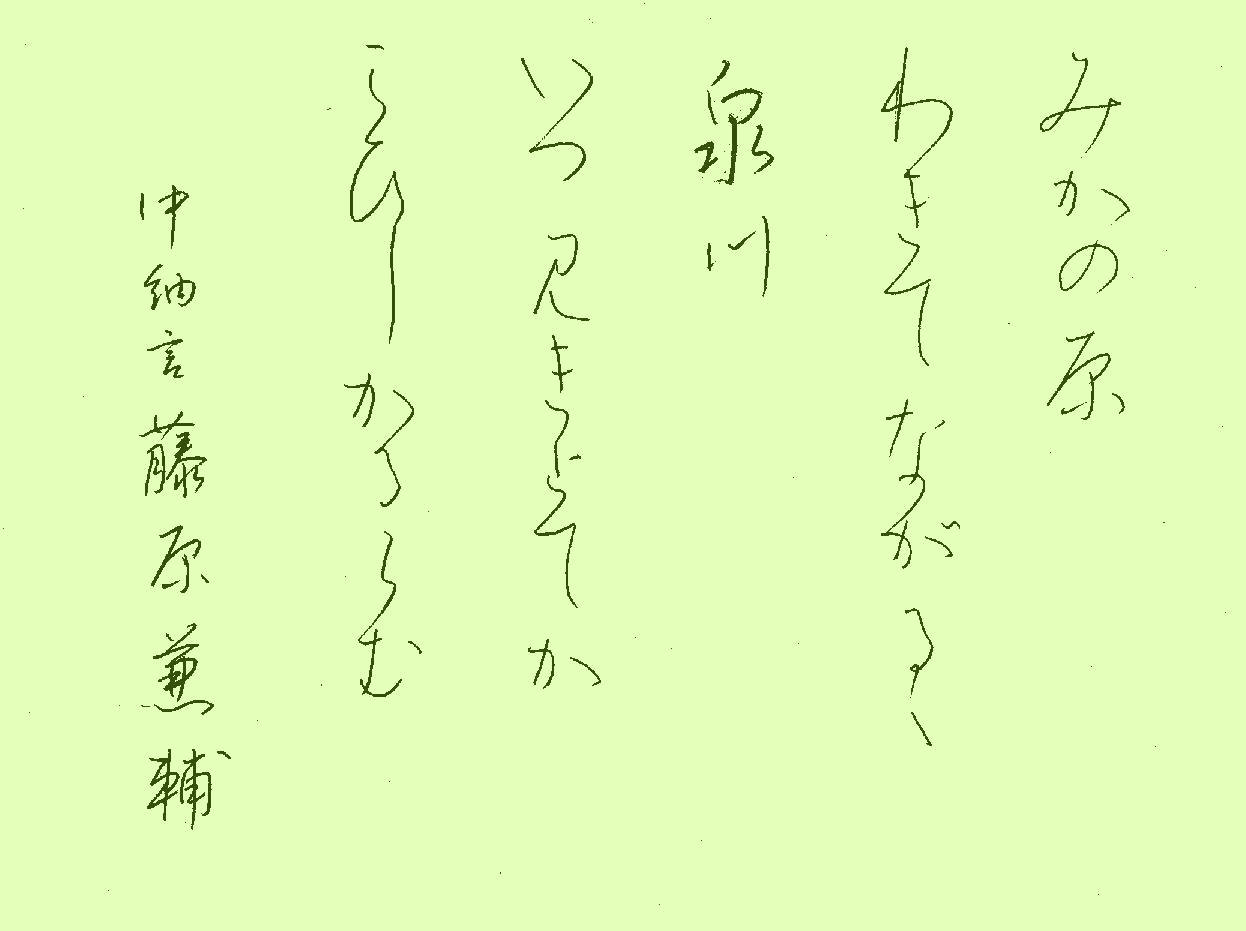 みかの原
わきてながるゝ
泉川
いつ見きとてか
こひしかるらむ
中納言藤原兼輔